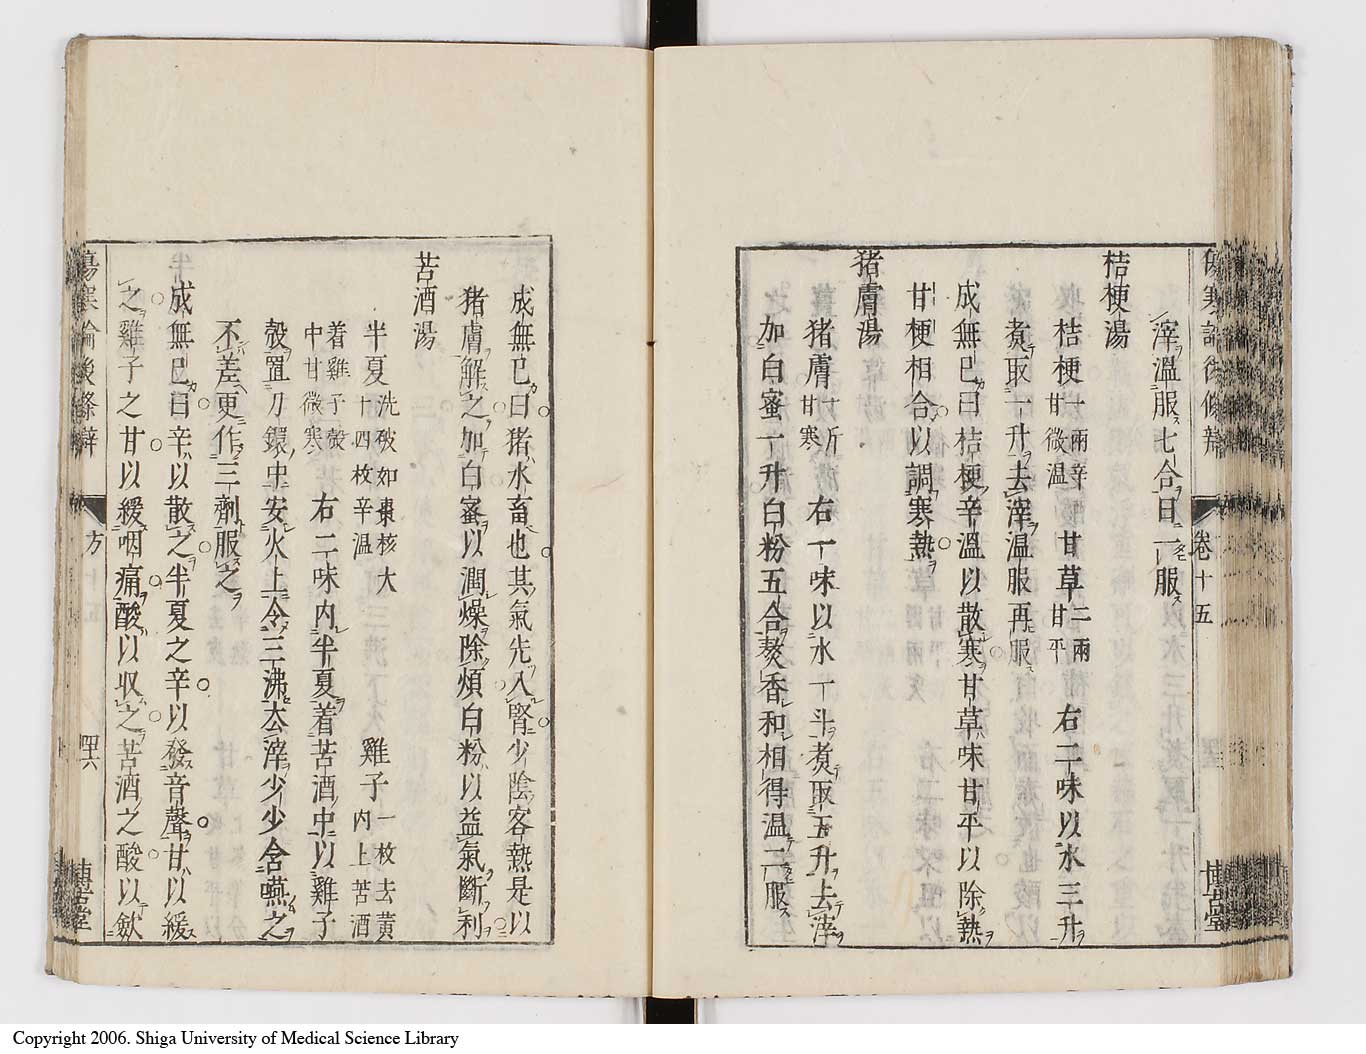 傷寒論後條辯 卷十五 博古堂
滓溫服七合日二服
桔梗湯
桔梗一兩辛甘微溫 甘草二兩甘平 右二味以水三升
煑取一升去滓溫服再服
成無已曰桔梗辛溫以散寒甘草味甘平以除熱
甘梗相合以調寒熱
猪膚湯
猪膚十斤甘寒 右一味以水一斗煑取五升去滓
加白蜜一升白粉五合熬香和相得溫二服
成無已曰猪水畜也其氣先入腎少陰客熱是以
猪膚解之加白蜜以潤燥除煩白粉以益氣斷利
苦酒湯
半夏洗破如棗核大十四枚辛溫 雞子一枚去黃內上苦酒
着雞子殼中甘微寒 右二味內半夏着苦酒中以雞子
殼置刀鐶中安火上令三沸去滓少少含嚥之
不差更作三劑服之
成無已曰辛以散之半夏之辛以發音聲甘以緩
之雞子之甘以緩咽痛酸以収之苦酒之酸以歛
傷寒論後條辯 方 博古堂
Copyright 2006. Shiga University of Medical Science Library